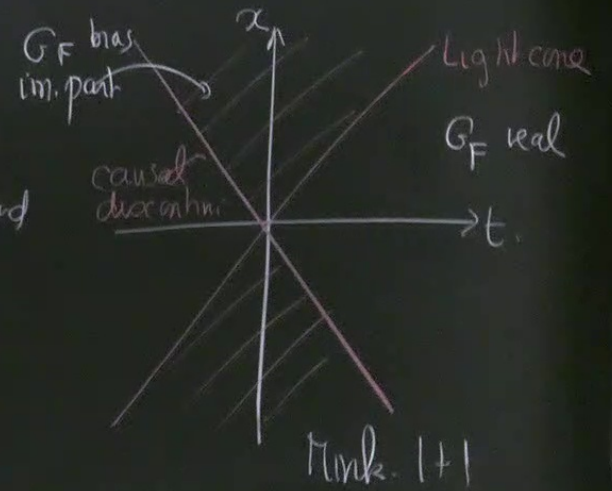 x
G_F has
im. part
Light cone
G_F real
causal
discontinui
t.
Mink. 1+1